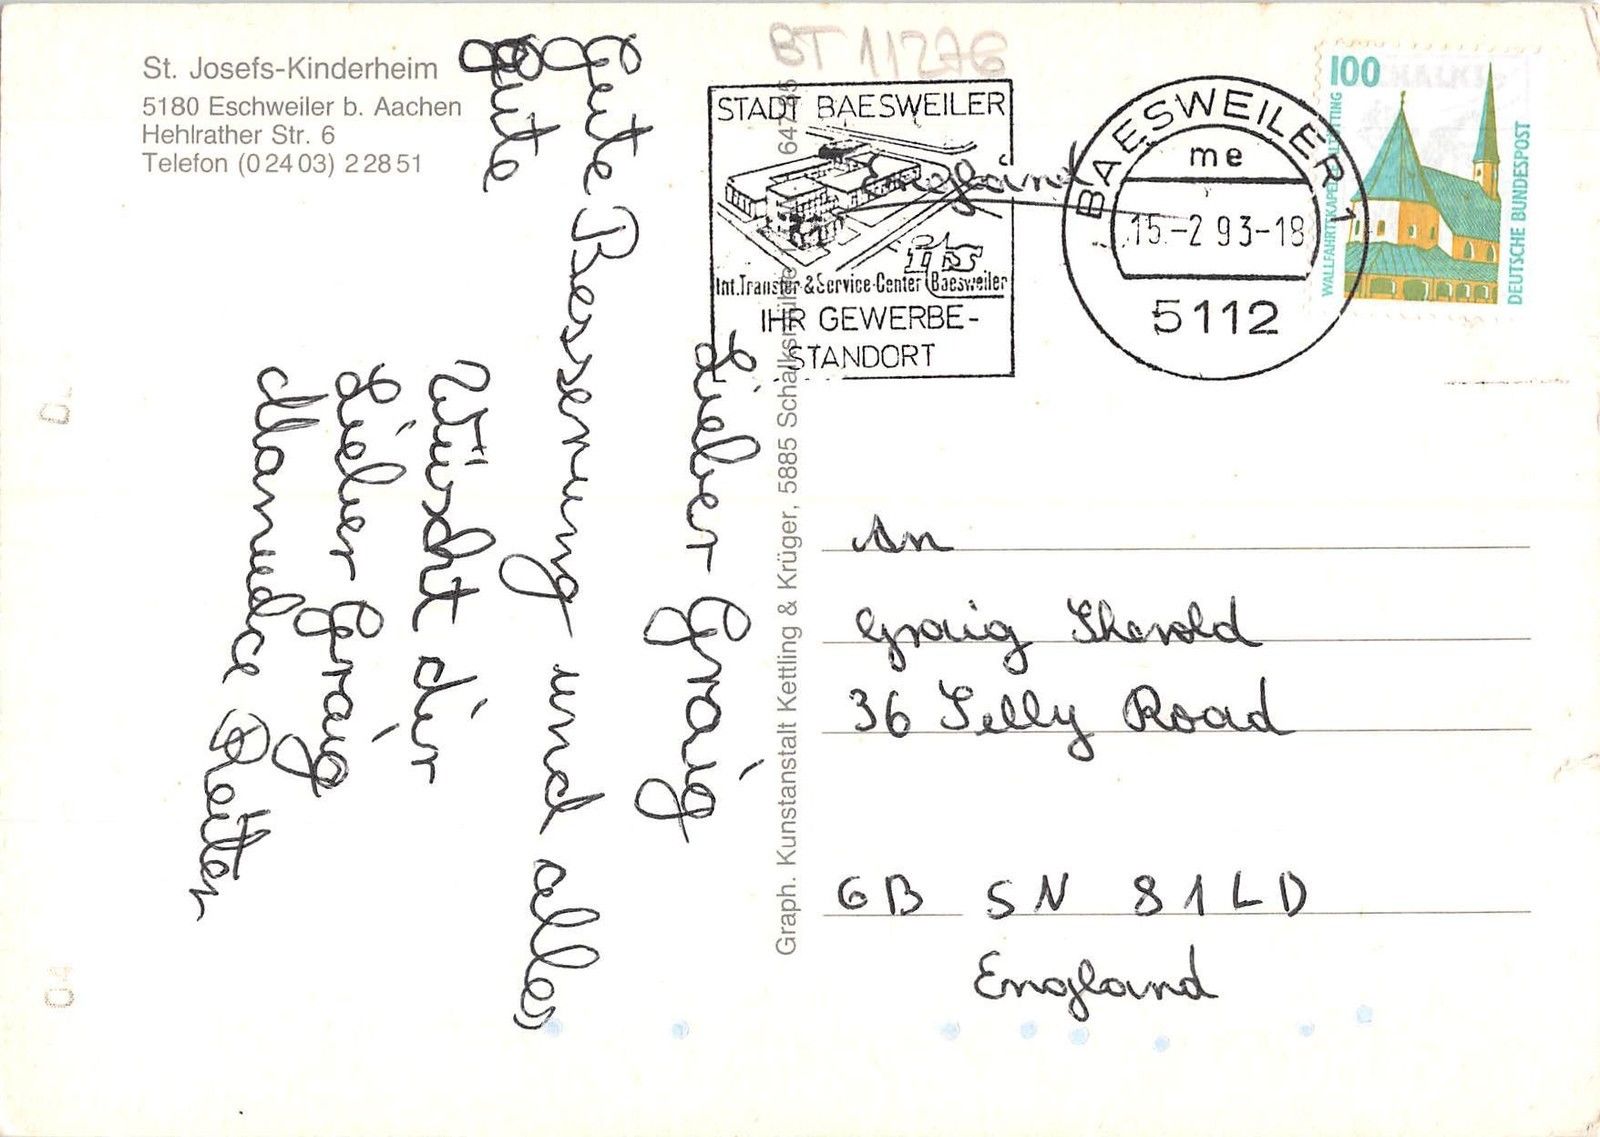 St. Josefs-Kinderheim
5180 Eschweiler b. Aachen
Hehlrather Str. 6
Telefon (02403) 22851
Lieber Graig
Gute Besserung und alles
gute
Wünscht dir
Lieber Graig
Manuela
Graph. Kunstanstalt Kettling & Krüger, 5885 Schalksmühle
BT 11276
STADT BAESWEILER
its
Int. Transfer & Service-Center Baesweiler
IHR GEWERBE-
STANDORT
England
BAESWEILER 1
me
15.-2 93-18
5112
100
WALLFAHRTSKAPELLE ALTÖTTING
DEUTSCHE BUNDESPOST
An
Graig Sherold
36 Selly Road
GB SN 81LD
England
04